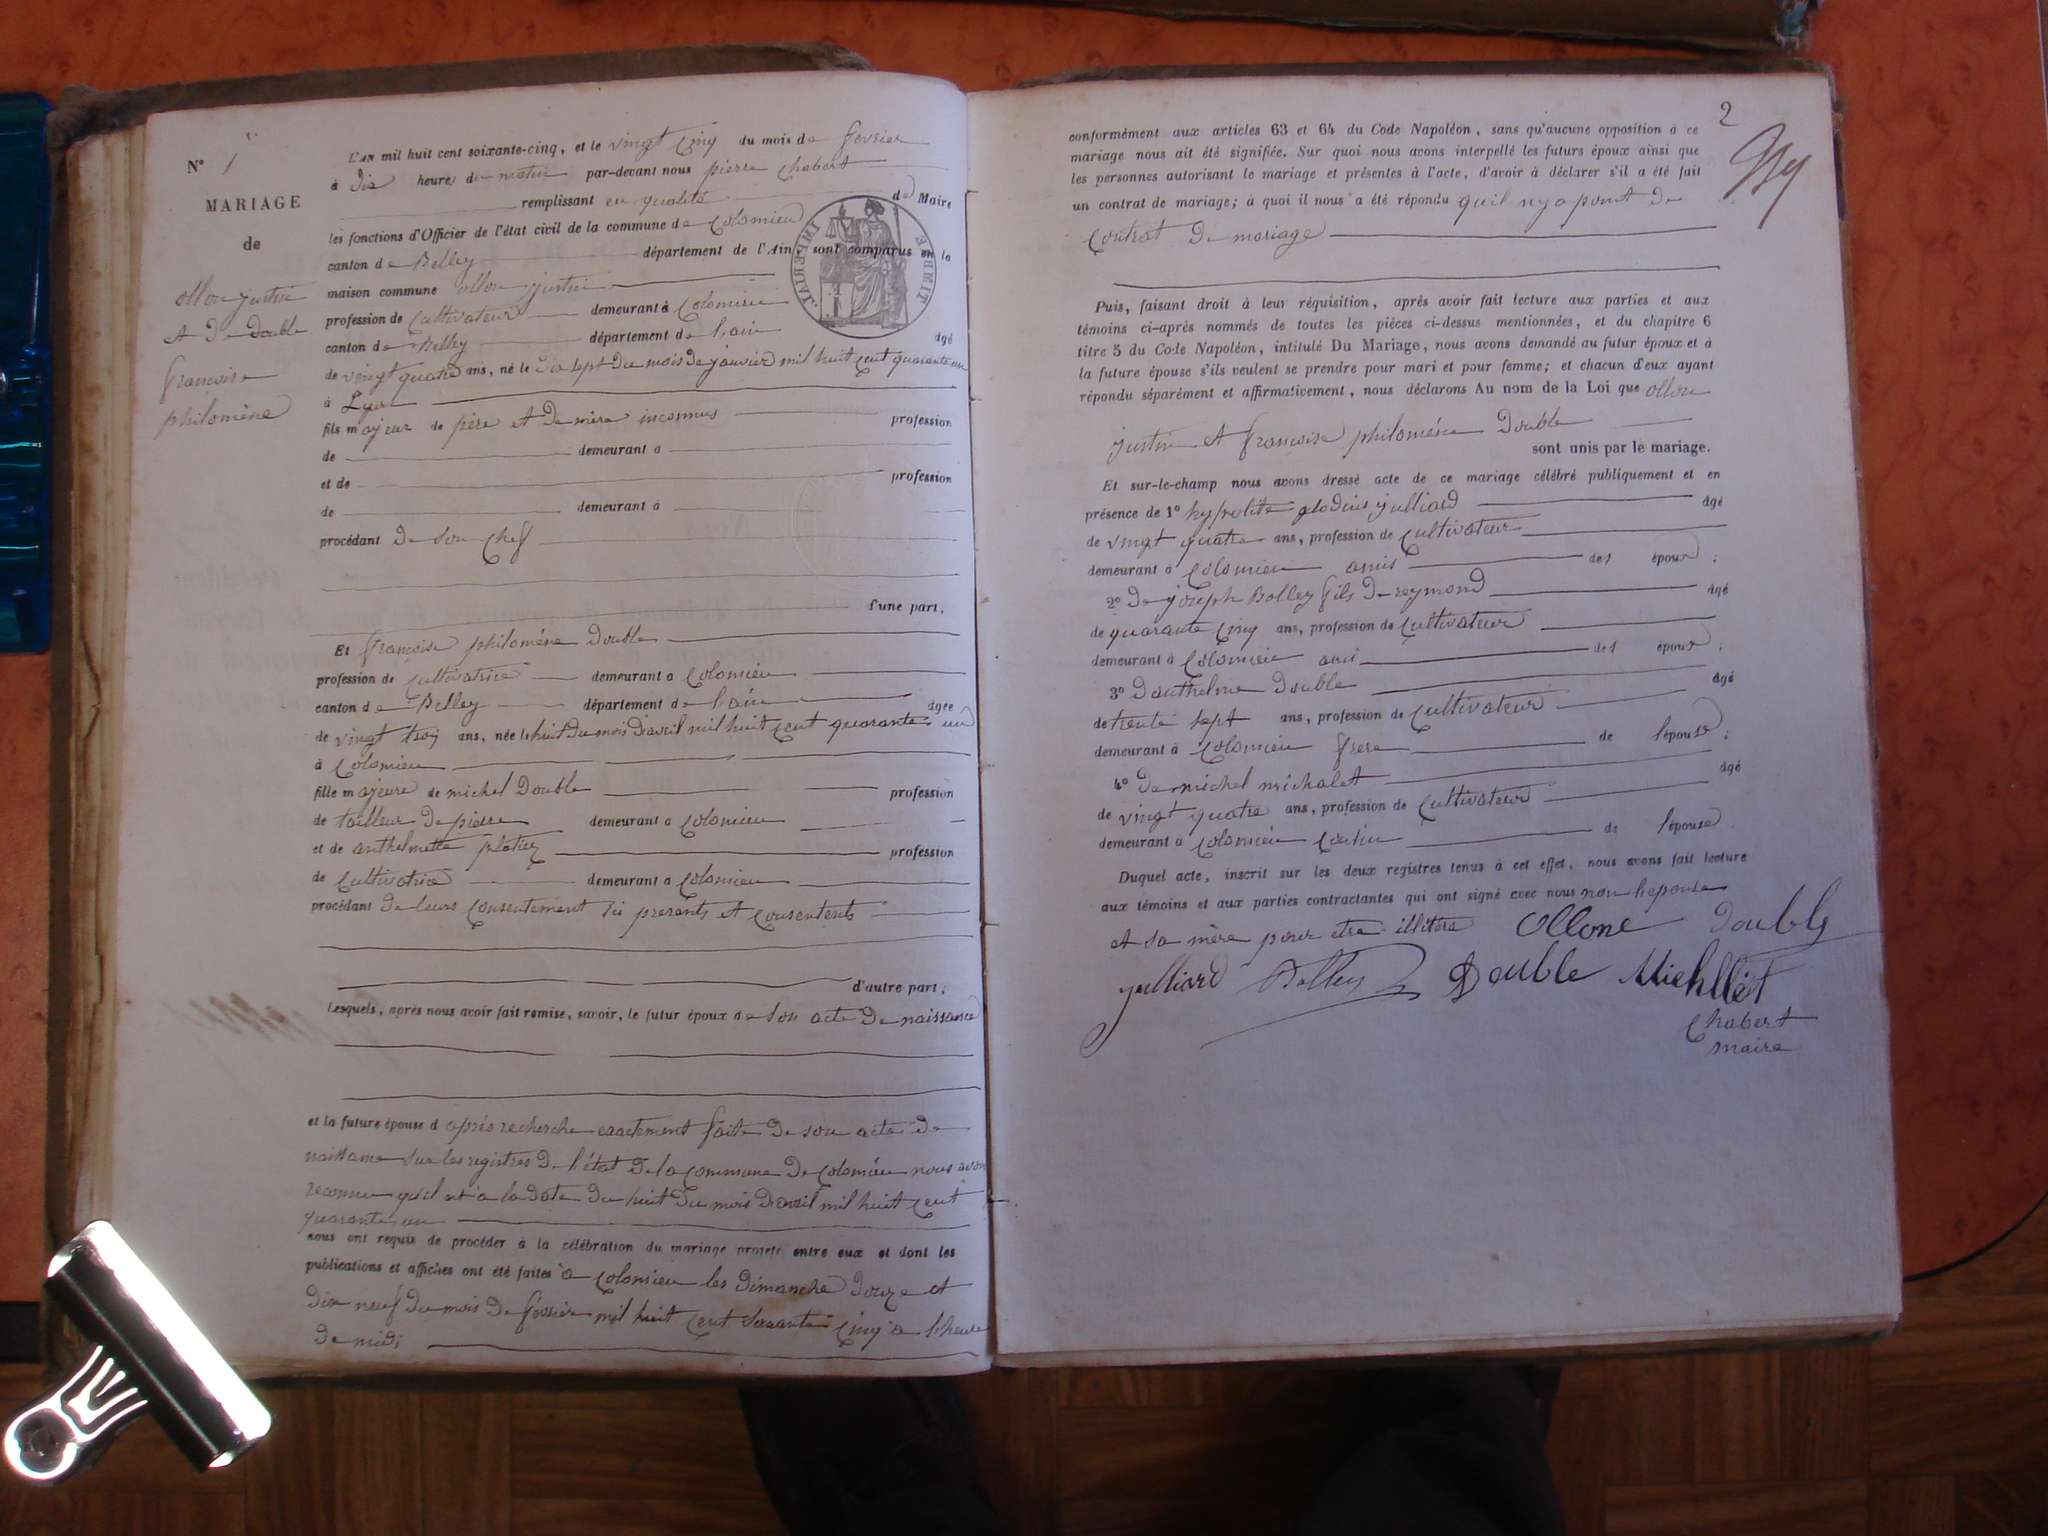 N° 1
MARIAGE
de
ollon justin
et De Double
françoise
philomène
L'AN mil huit cent soixante-cinq, et le vingt cinq du mois de fevrier
à dix heures du matin par-devant nous pierre chabert
remplissant en qualité de Maire
les fonctions d'Officier de l'état civil de la commune de Colomieu
canton de Belley département de l'Ain, sont comparus en la
maison commune ollon justin
profession de Cultivateur demeurant à Colomieu
canton de Belley département de l'ain âgé
de vingt quatre ans, né le dix sept du mois de janvier mil huit cent quarante un
à Lyon
fils majeur de père et de mère inconnus profession
de demeurant à
et de profession
de demeurant à
procédant De son chef
d'une part,
Et françoise philomène Double
profession de Cultivatrice demeurant à Colomieu
canton de Belley département de l'ain âgée
de vingt trois ans, née le huit du mois d'avril mil huit cent quarante un
à Colomieu
fille majeure de michel Double profession
de tailleur de pierre demeurant à Colomieu
et de anthelmette platiez profession
de Cultivatrice demeurant à Colomieu
procédant de leurs consentement ici presents et consentents
d'autre part;
Lesquels, après nous avoir fait remise, savoir, le futur époux de son acte De naissance
et la future épouse d après recherche exactement faite De son acte De
naissance sur les registres De l'état De la commune De Colomieu nous avons
reconnu qu'il est a la date Du huit Du mois D'avril mil huit cent
quarante un
nous ont requis de procéder à la célébration du mariage projeté entre eux et dont les
publications et affiches ont été faites à Colomieu les Dimanche Douze et
Dix neuf Du mois De février mil huit cent soixante cinq a l'heure
De midi
TIMBRE IMPERIAL
2
conformément aux articles 63 et 64 du Code Napoléon, sans qu'aucune opposition à ce
mariage nous ait été signifiée. Sur quoi nous avons interpellé les futurs époux ainsi que
les personnes autorisant le mariage et présentes à l'acte, d'avoir à déclarer s'il a été fait
un contrat de mariage; à quoi il nous a été répondu qu'il n'y a point de
contrat De mariage
Puis, faisant droit à leur réquisition, après avoir fait lecture aux parties et aux
témoins ci-après nommés de toutes les pièces ci-dessus mentionnées, et du chapitre 6
titre 5 du Code Napoléon, intitulé Du Mariage, nous avons demandé au futur époux et à
la future épouse s'ils veulent se prendre pour mari et pour femme; et chacun d'eux ayant
répondu séparément et affirmativement, nous déclarons Au nom de la Loi que ollon
justin et françoise philomène Double
sont unis par le mariage.
Et sur-le-champ nous avons dressé acte de ce mariage célébré publiquement et en
présence de 1° hypolite glodius julliard âgé
de vingt quatre ans, profession de Cultivateur
demeurant à Colomieu amis des époux;
2° de joseph Bolley fils De reymond âgé
de quarante cinq ans, profession de Cultivateur
demeurant à Colomieu ami des époux;
3° D'anthelme Double âgé
de trente sept ans, profession de Cultivateur
demeurant à Colomieu frere de l'épouse;
4° De michel michalet âgé
de vingt quatre ans, profession de Cultivateur
demeurant à Colomieu cousin de l'épouse
Duquel acte, inscrit sur les deux registres tenus à cet effet, nous avons fait lecture
aux témoins et aux parties contractantes qui ont signé avec nous non l'epouse
et sa mère pour etre illitere Ollone Double
julliard Bolley Double Michllet
Chabert
maire